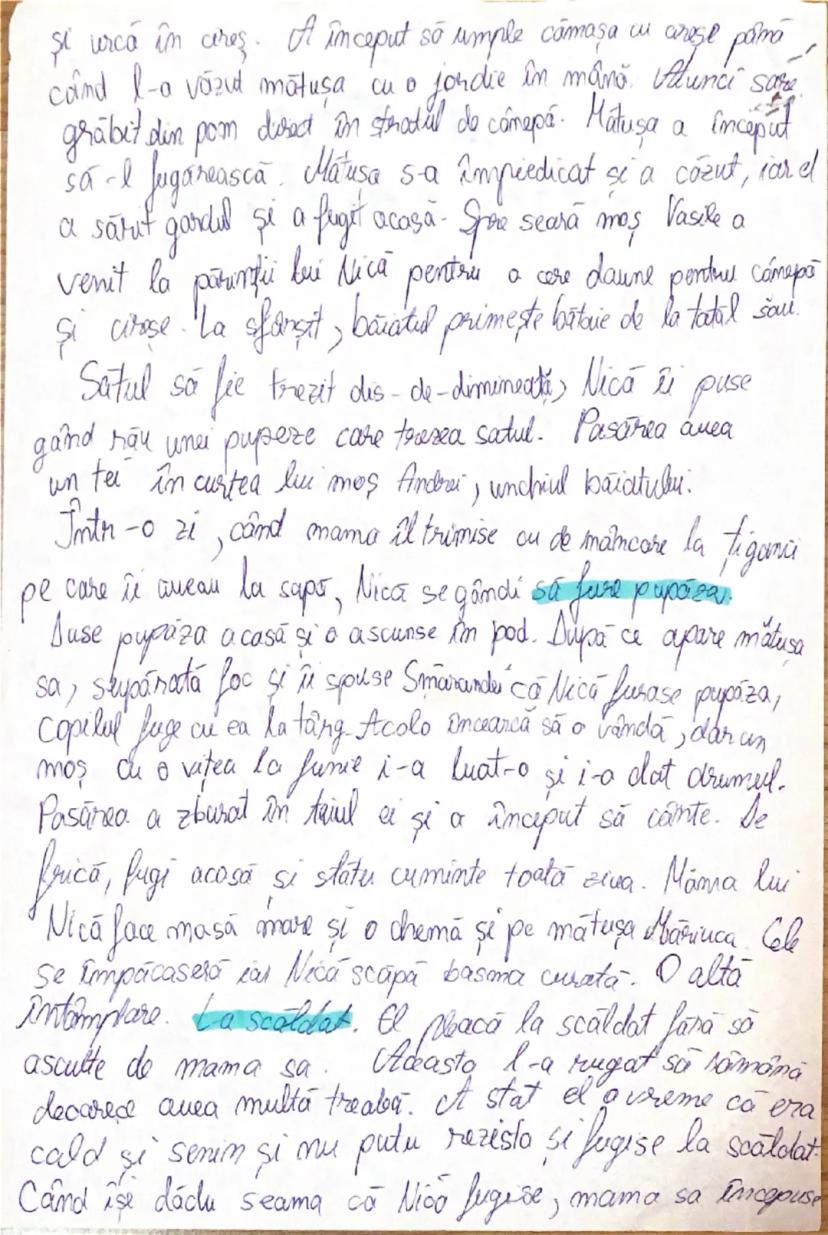 și urcă în cireș. A început să umple cămașa cu cireșe până
când l-a văzut mătușa cu o jordie în mână. Atunci sare
grăbit din pom direct în stratul de cânepă. Mătușa a început
să-l fugărească. Mătușa s-a împiedicat și a căzut, iar el
a sărit gardul și a fugit acasă. Spre seară moș Vasile a
venit la părinții lui Nică pentru a cere daune pentru cânepă
și cireșe. La sfârșit, băiatul primește bătaie de la tatăl său.
Satul să fie trezit dis-de-dimineață, Nică îi puse
gând rău unei pupeze care trezea satul. Pasărea avea
un tei în curtea lui moș Andrei, unchiul băiatului.
Într-o zi, când mama îl trimise cu de mâncare la țiganii
pe care îi aveau la sapă, Nică se gândi să fure pupăza.
Duse pupăza acasă și o ascunse în pod. După ce apare mătușa
sa, supărată foc și îi spuse Smarandei că Nică furase pupăza,
copilul fuge cu ea la târg. Acolo încearcă să o vândă, dar un
moș cu o vițea la funie i-a luat-o și i-a dat drumul.
Pasărea a zburat în teiul ei și a început să cânte. De
frică, fugi acasă și stătu cuminte toată ziua. Mama lui
Nică face masă mare și o chemă și pe mătușa Măriuca. Cele
se împăcaseră iar Nică scăpă basma curată. O altă
întâmplare. La scăldat. El pleacă la scăldat fără să
asculte de mama sa. Aceasta l-a rugat să rămână
deoarece avea multă treabă. A stat el o vreme că era
cald și senin și nu putu rezista și fugise la scăldat.
Când își dădu seama că Nică fugise, mama sa începuse